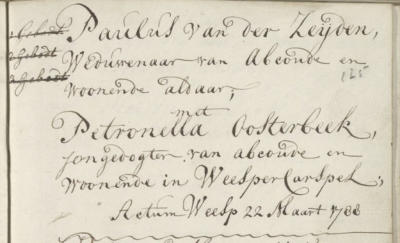 1 Gebodt Paulus van der Zeijden,
2 Gebodt Weduwenaar van Abcoude en
3 Gebodt woonende aldaar; 125
met
Petronella Oosterbeek,
jongedogter van abcoude en
woonende in WeesperCarspel,
Actum Weesp 22 Maart 1788